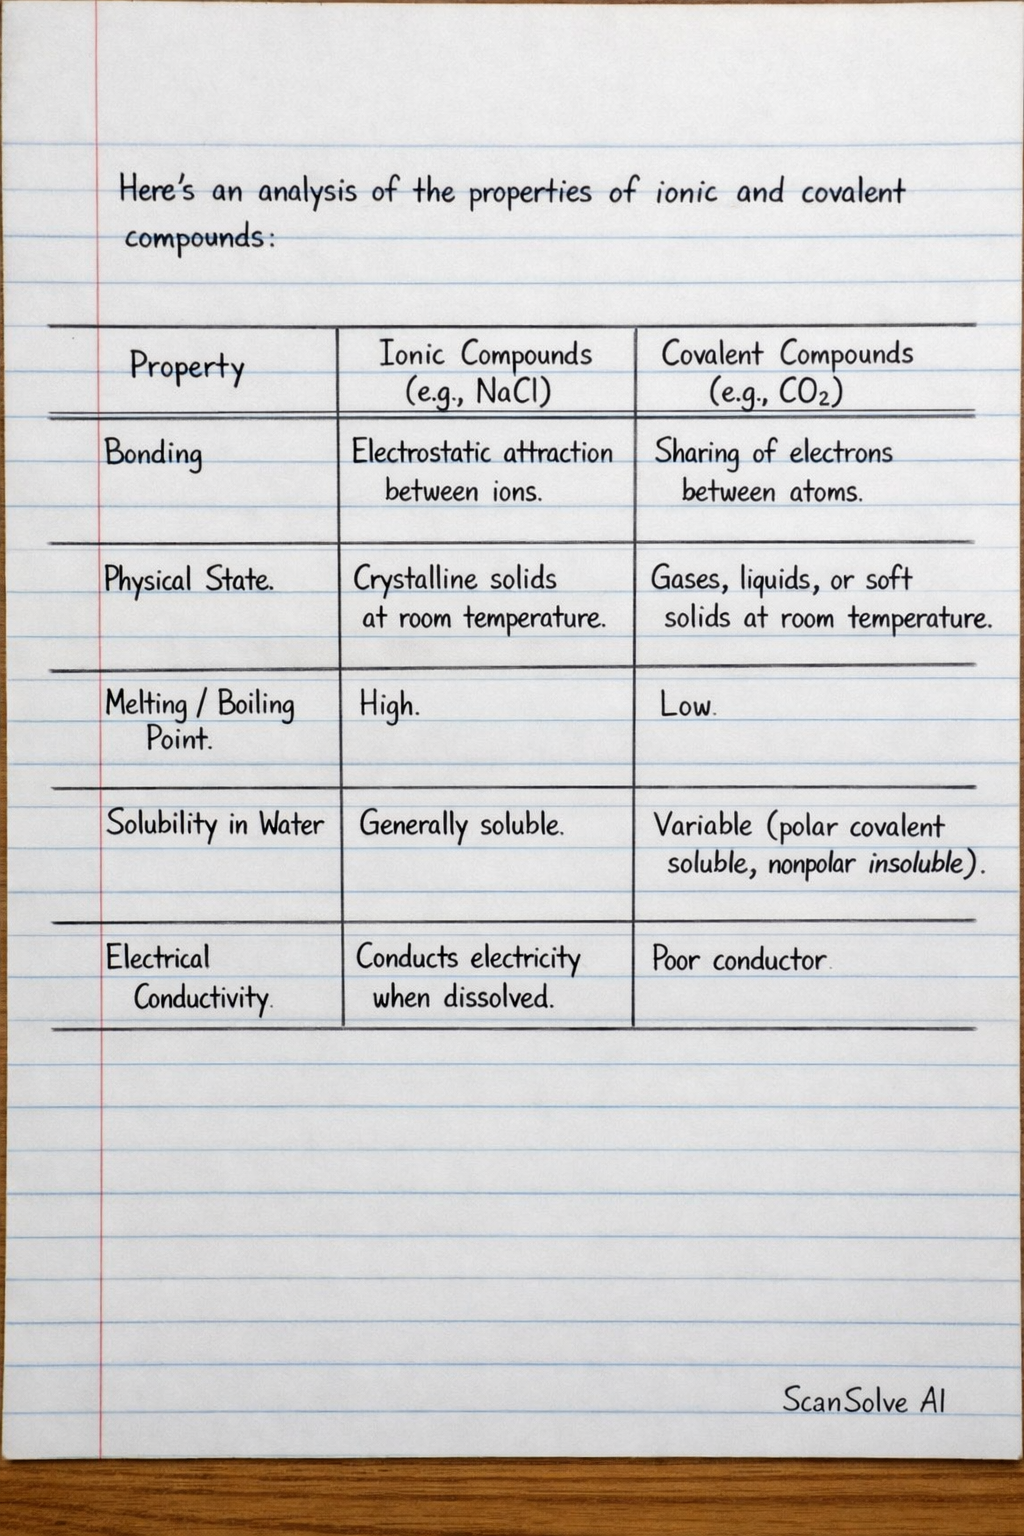 Here's an analysis of the properties of ionic and covalent
compounds:
Property
Ionic Compounds
(e.g., NaCl)
Covalent Compounds
(e.g., CO₂)
Bonding
Electrostatic attraction
between ions.
Sharing of electrons
between atoms.
Physical State.
Crystalline solids
at room temperature.
Gases, liquids, or soft
solids at room temperature.
Melting / Boiling
Point.
High.
Low.
Solubility in Water
Generally soluble.
Variable (polar covalent
soluble, nonpolar insoluble).
Electrical
Conductivity.
Conducts electricity
when dissolved.
Poor conductor.
ScanSolve AI